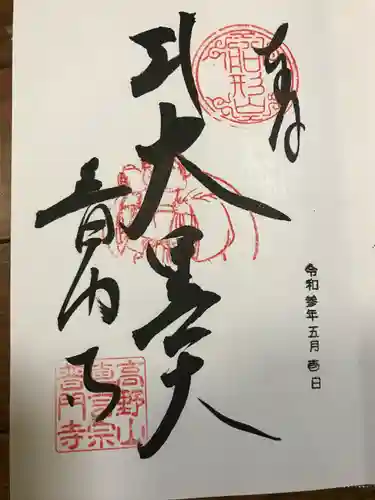 奉拝
大黒天
普門寺
令和参年五月壱日
船形山
高野山
真言宗
普門寺